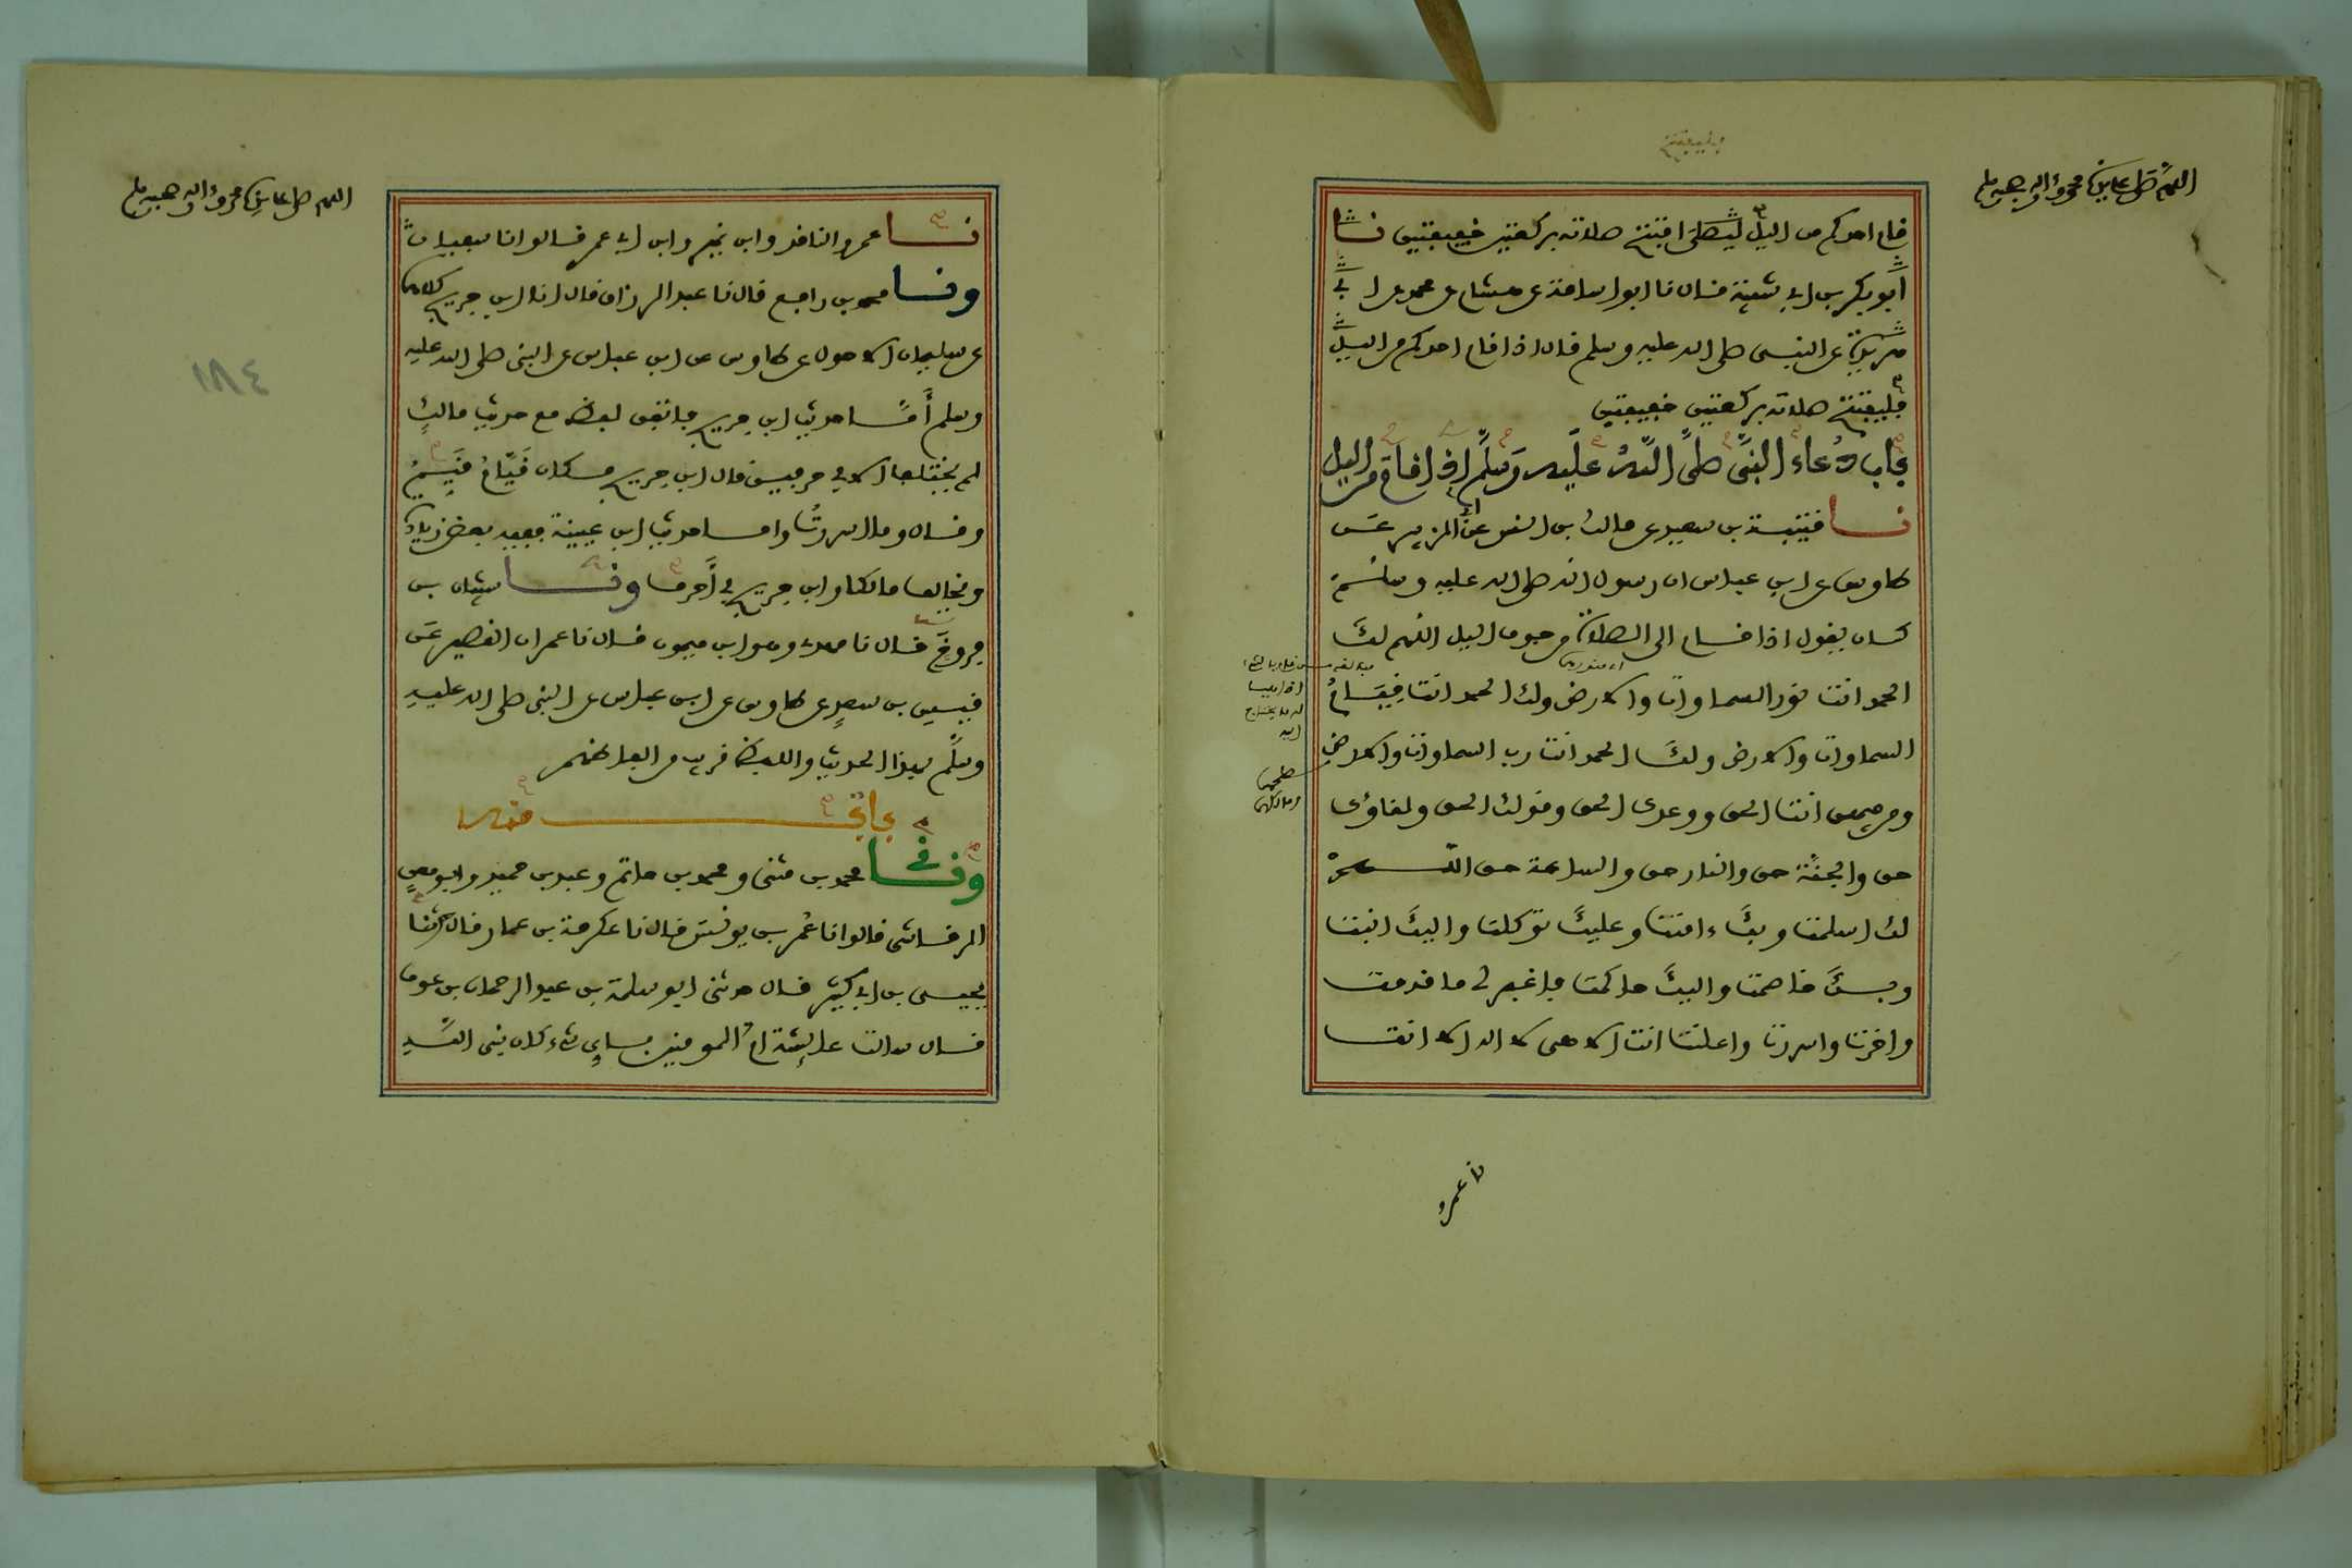 اللهم صل على سيدنا محمد وءاله وصحبه وسلم
فليفتتح
قام احدكم من اليل ليصلى افتتح صلاته بركعتين خفيفتين نا
أبو بكر بن ابي شيبة قال نا ابو اسامة عن هشام عن محمد عن ابي
هريرة عن النبي صلى الله عليه وسلم قال اذا قام احدكم من اليل
فليفتتح صلاته بركعتين خفيفتين
باب دعاء النبي صلى الله عليه وسلم اذا قام من اليل
نا قتيبة بن سعيد عن مالك بن انس عن ابي الزبير عن
طاوس عن ابن عباس ان رسول الله صلى الله عليه وسلم
كان يقول اذا قام الى الصلاة من جوف اليل اللهم لك
الحمد انت نور السماوات والارض ولك الحمد انت قيام
السماوات والارض ولك الحمد انت رب السماوات والارض
ومن فيهن انت الحق ووعدك الحق وقولك الحق ولقاؤك
حق والجنة حق والنار حق والساعة حق اللهم
لك اسلمت وبك ءامنت وعليك توكلت واليك انبت
وبك خاصمت واليك حاكمت فاغفر لي ما قدمت
واخرت واسررت واعلنت انت الاهى لا اله الا انت
نا عمرو
اللهم صل على سيدنا محمد وءاله وصحبه وسلم
١٨٤
نا عمرو الناقد وابن نمير وابن ابي عمر قالوا نا سفيان
ونا محمد بن رافع قال نا عبد الرزاق قال انا ابن جريج كلاهما
عن سليمان الاحول عن طاوس عن ابن عباس عن النبي صلى الله عليه
وسلم أما حديث ابن جريج فاتفق لفظه مع حديث مالك
لم يختلفا الا في حرفين قال ابن جريج مكان قيام قيم
وقال وما اسررت واما حديث ابن عيينة ففيه بعض زيادة
ويخالف مالكا وابن جريج في أحرف ونا شيبان بن
فروخ قال نا مهدي وهو ابن ميمون قال نا عمران القصير عن
قيس بن سعد عن طاوس عن ابن عباس عن النبي صلى الله عليه
وسلم بهذا الحديث واللفظ قريب من الفاظهم
باب منه
ونا محمد بن مثنى ومحمد بن حاتم وعبد بن حميد وابو معن
الرقاشى قالوا نا عمر بن يونس قال نا عكرمة بن عمار قال نا
يحيى بن ابي كثير قال حدثنى ابو سلمة بن عبد الرحمان بن عوف
قال سالت عائشة ام المومنين باي شيء كان نبى الله